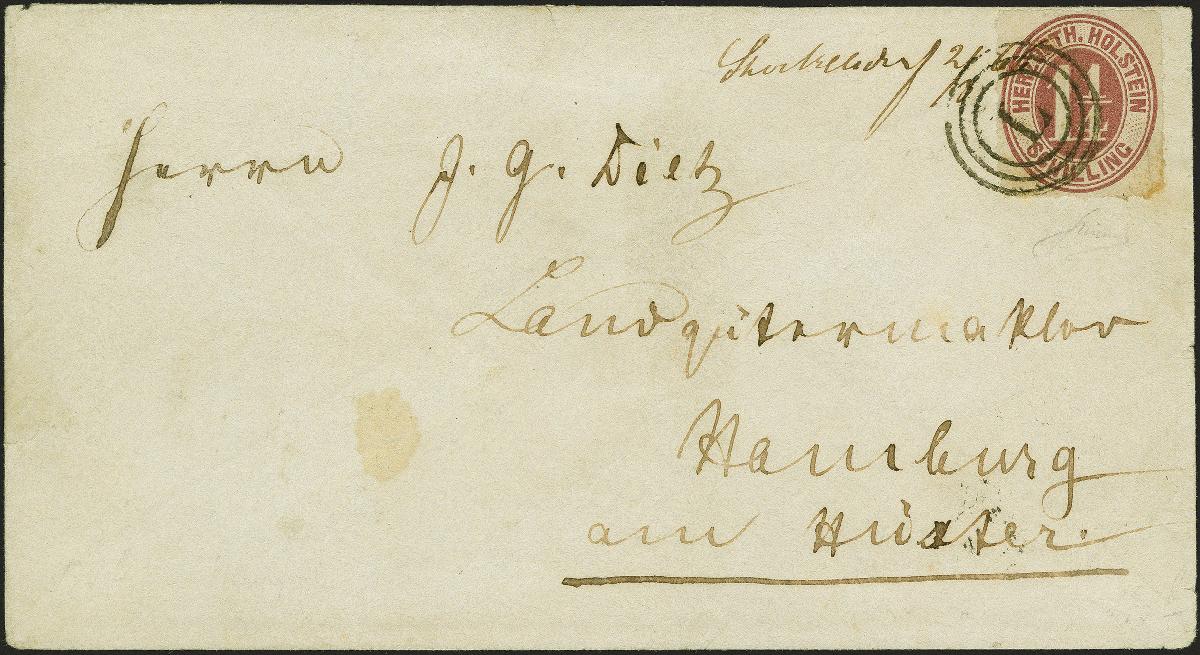 Stockelsdorf 2/
HERZOGTH. HOLSTEIN
1¼
SCHILLING
Herrn J. G. Dietz
Landgütermakler
Hamburg
am Hüxter.